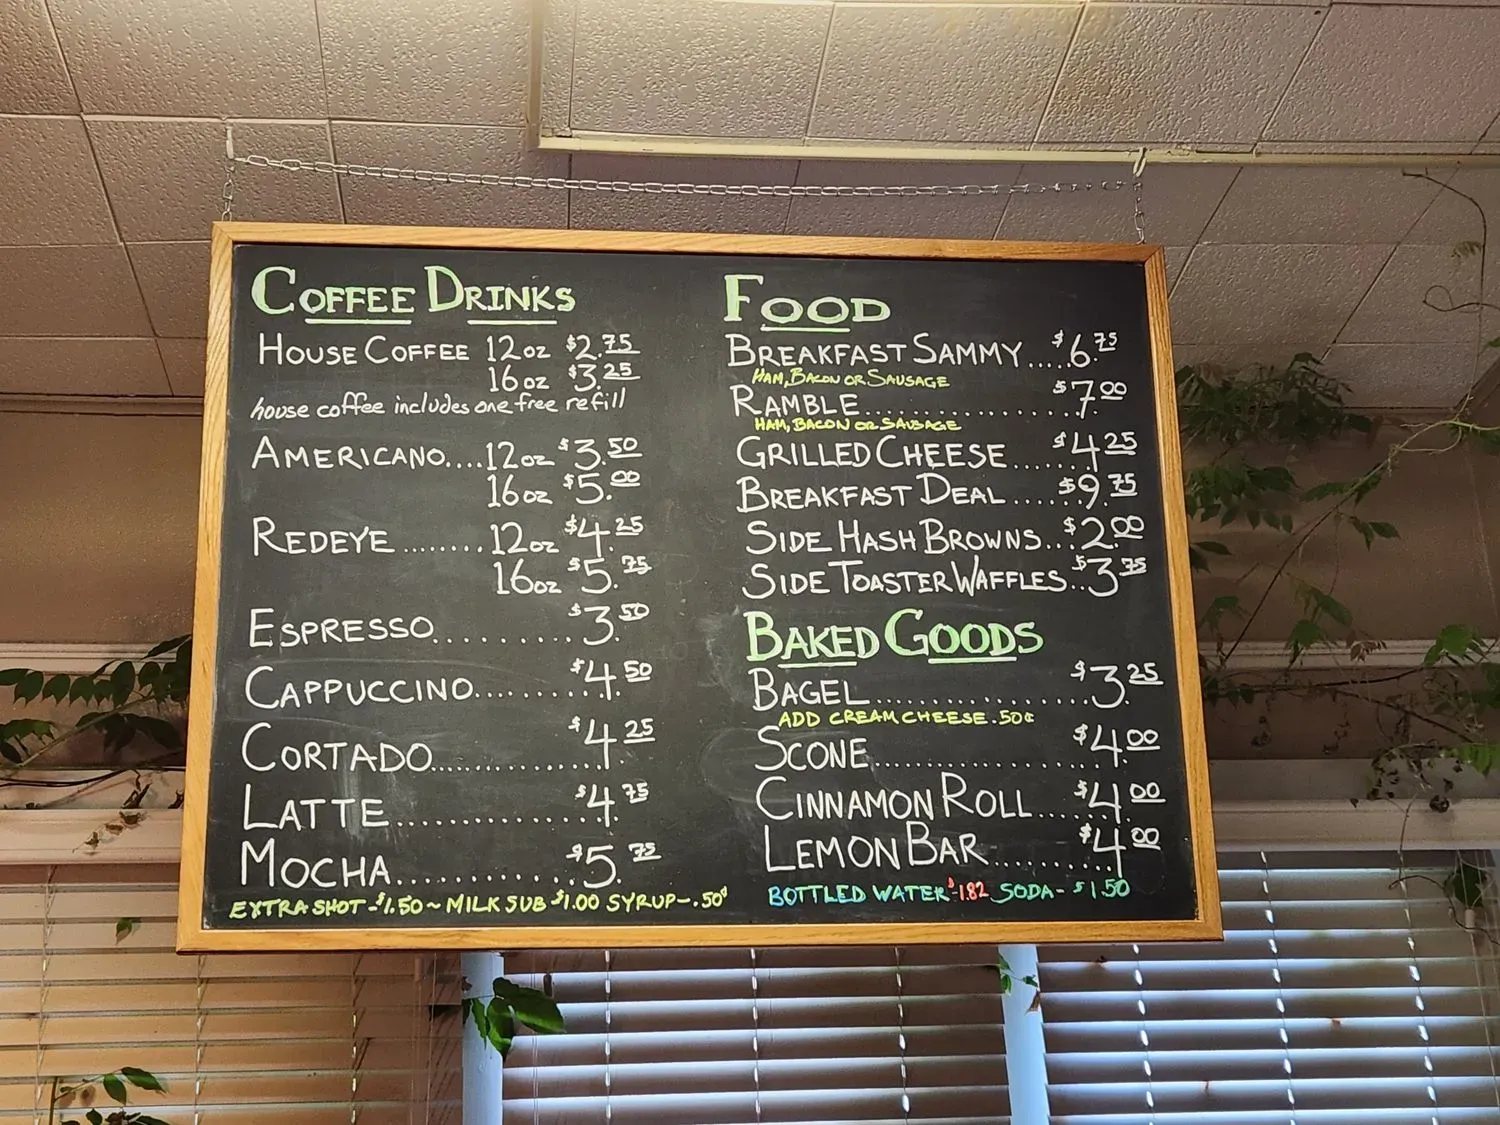 COFFEE DRINKS
HOUSE COFFEE 12oz $2.75
16oz $3.25
house coffee includes one free refill
AMERICANO....12oz $3.50
16oz $5.00
REDEYE ........12oz $4.25
16oz $5.75
ESPRESSO..........$3.50
CAPPUCCINO.........$4.50
CORTADO..............$4.25
LATTE................$4.75
MOCHA............$5.75
EXTRA SHOT -$1.50 ~ MILK SUB $1.00 SYRUP-.50¢
FOOD
BREAKFAST SAMMY.....$6.75
HAM, BACON OR SAUSAGE
RAMBLE..................$7.00
HAM, BACON OR SAUSAGE
GRILLED CHEESE......$4.25
BREAKFAST DEAL.....$9.75
SIDE HASH BROWNS...$2.00
SIDE TOASTER WAFFLES..$3.75
BAKED GOODS
BAGEL...................$3.25
ADD CREAM CHEESE .50¢
SCONE..................$4.00
CINNAMON ROLL.......$4.00
LEMON BAR........$4.00
BOTTLED WATER-$1.82 SODA-$1.50